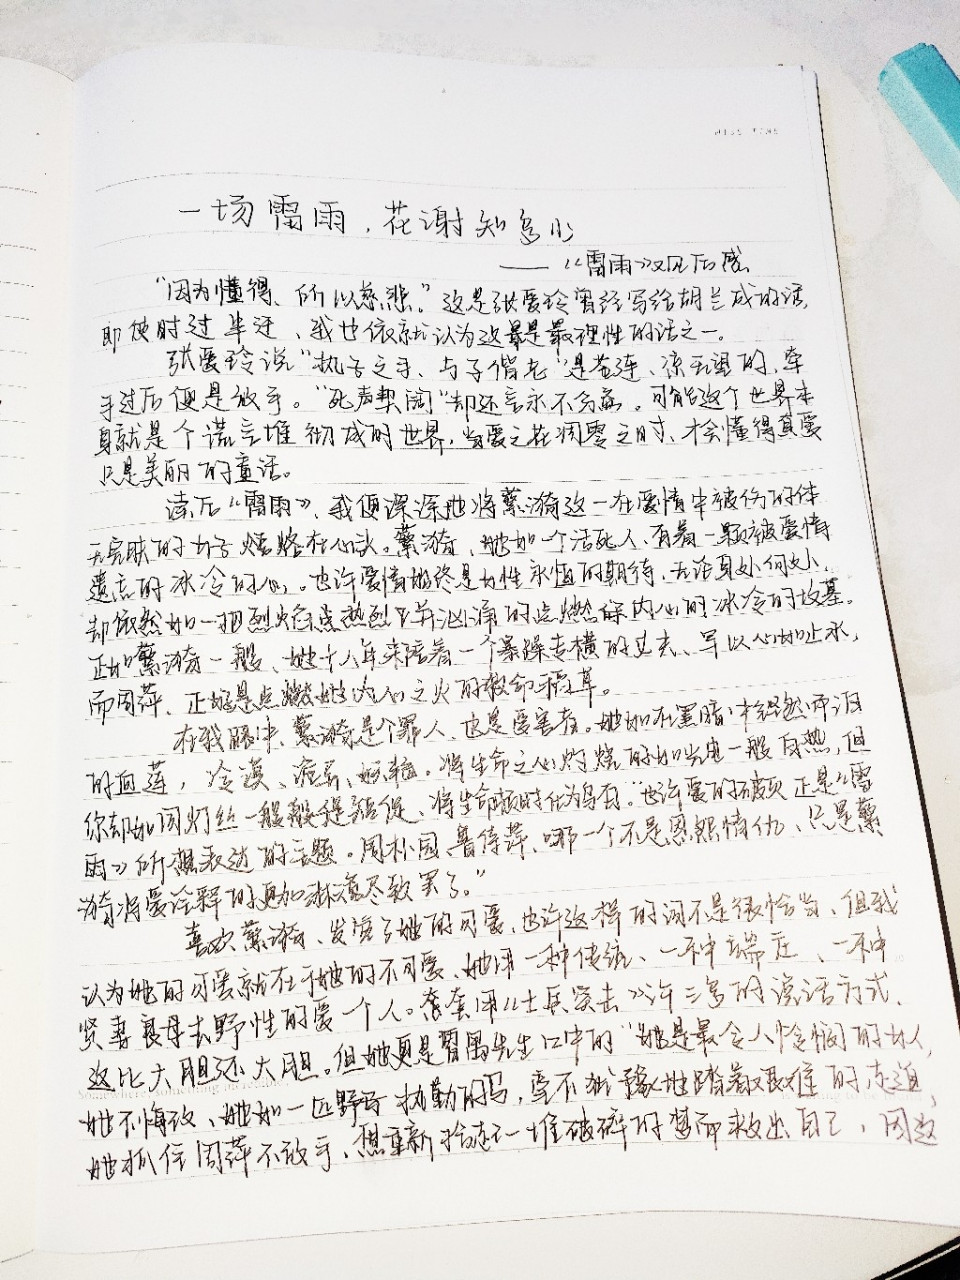 一场雷雨，花谢知多少
——《雷雨》观后感
“因为懂得、所以慈悲。”这是张爱玲曾经写给胡兰成的话，
即使时过半迁、我也依就认为这最是最理性的话之一。
张爱玲说“执子之手、与子偕老”是苍连、凉无望的，牵
手过后便是放手。“死声契阔”却还言永不分离。可能这个世界本
身就是个谎言堆彻成的世界，当爱之花凋零之时、才会懂得真爱
只是美丽的童话。
读后《雷雨》、我便深深地将蘩漪这一在爱情中被伤的体
无完肤的女子烙烙在心头。蘩漪、她如一个活死人、有着一颗被爱情
遗忘的冰冷的心。也许爱情始终是女性永恒的期待、无论身处何处、
却依然如一把烈焰 热烈 并汹涌的点燃 内心的冰冷的坟墓。
正如蘩漪一般、她十八年来陪着一个暴躁专横的丈夫、早以心如止水，
而周萍、正好是点燃她内心之火的救命稻草。
在我眼中、蘩漪是个罪人、也是受害者。她如在黑暗中
的血莲，冷漠、诡异、妖艳。将生命之心灼烧的如 一般白热，但
你却如同灯丝一般 、将生命顿时化为乌有。“也许爱的 正是《雷
雨》所想表达的主题。周朴园、鲁侍萍、哪一个不是恩怨情仇、只是蘩
漪将爱诠释的更加淋漓尽致罢了。”
喜欢蘩漪、发觉了她的可爱、也许这样的词不是很恰当、但我
认为她的可爱就在于她的不可爱、她用一种传统、一种端庄、一种
贤妻良母去野性的爱一个人。套套用《士兵突击》许三多的说话方式、
这比大胆还大胆。但她更是曹禺先生口中的“她是最令人怜悯的女人，
她不悔改、她如一匹野 执勤的马，毫不犹豫地踏着艰难的老道，
她抓住周萍不放手、想重新拾起一堆破碎的梦而救出自己、因这